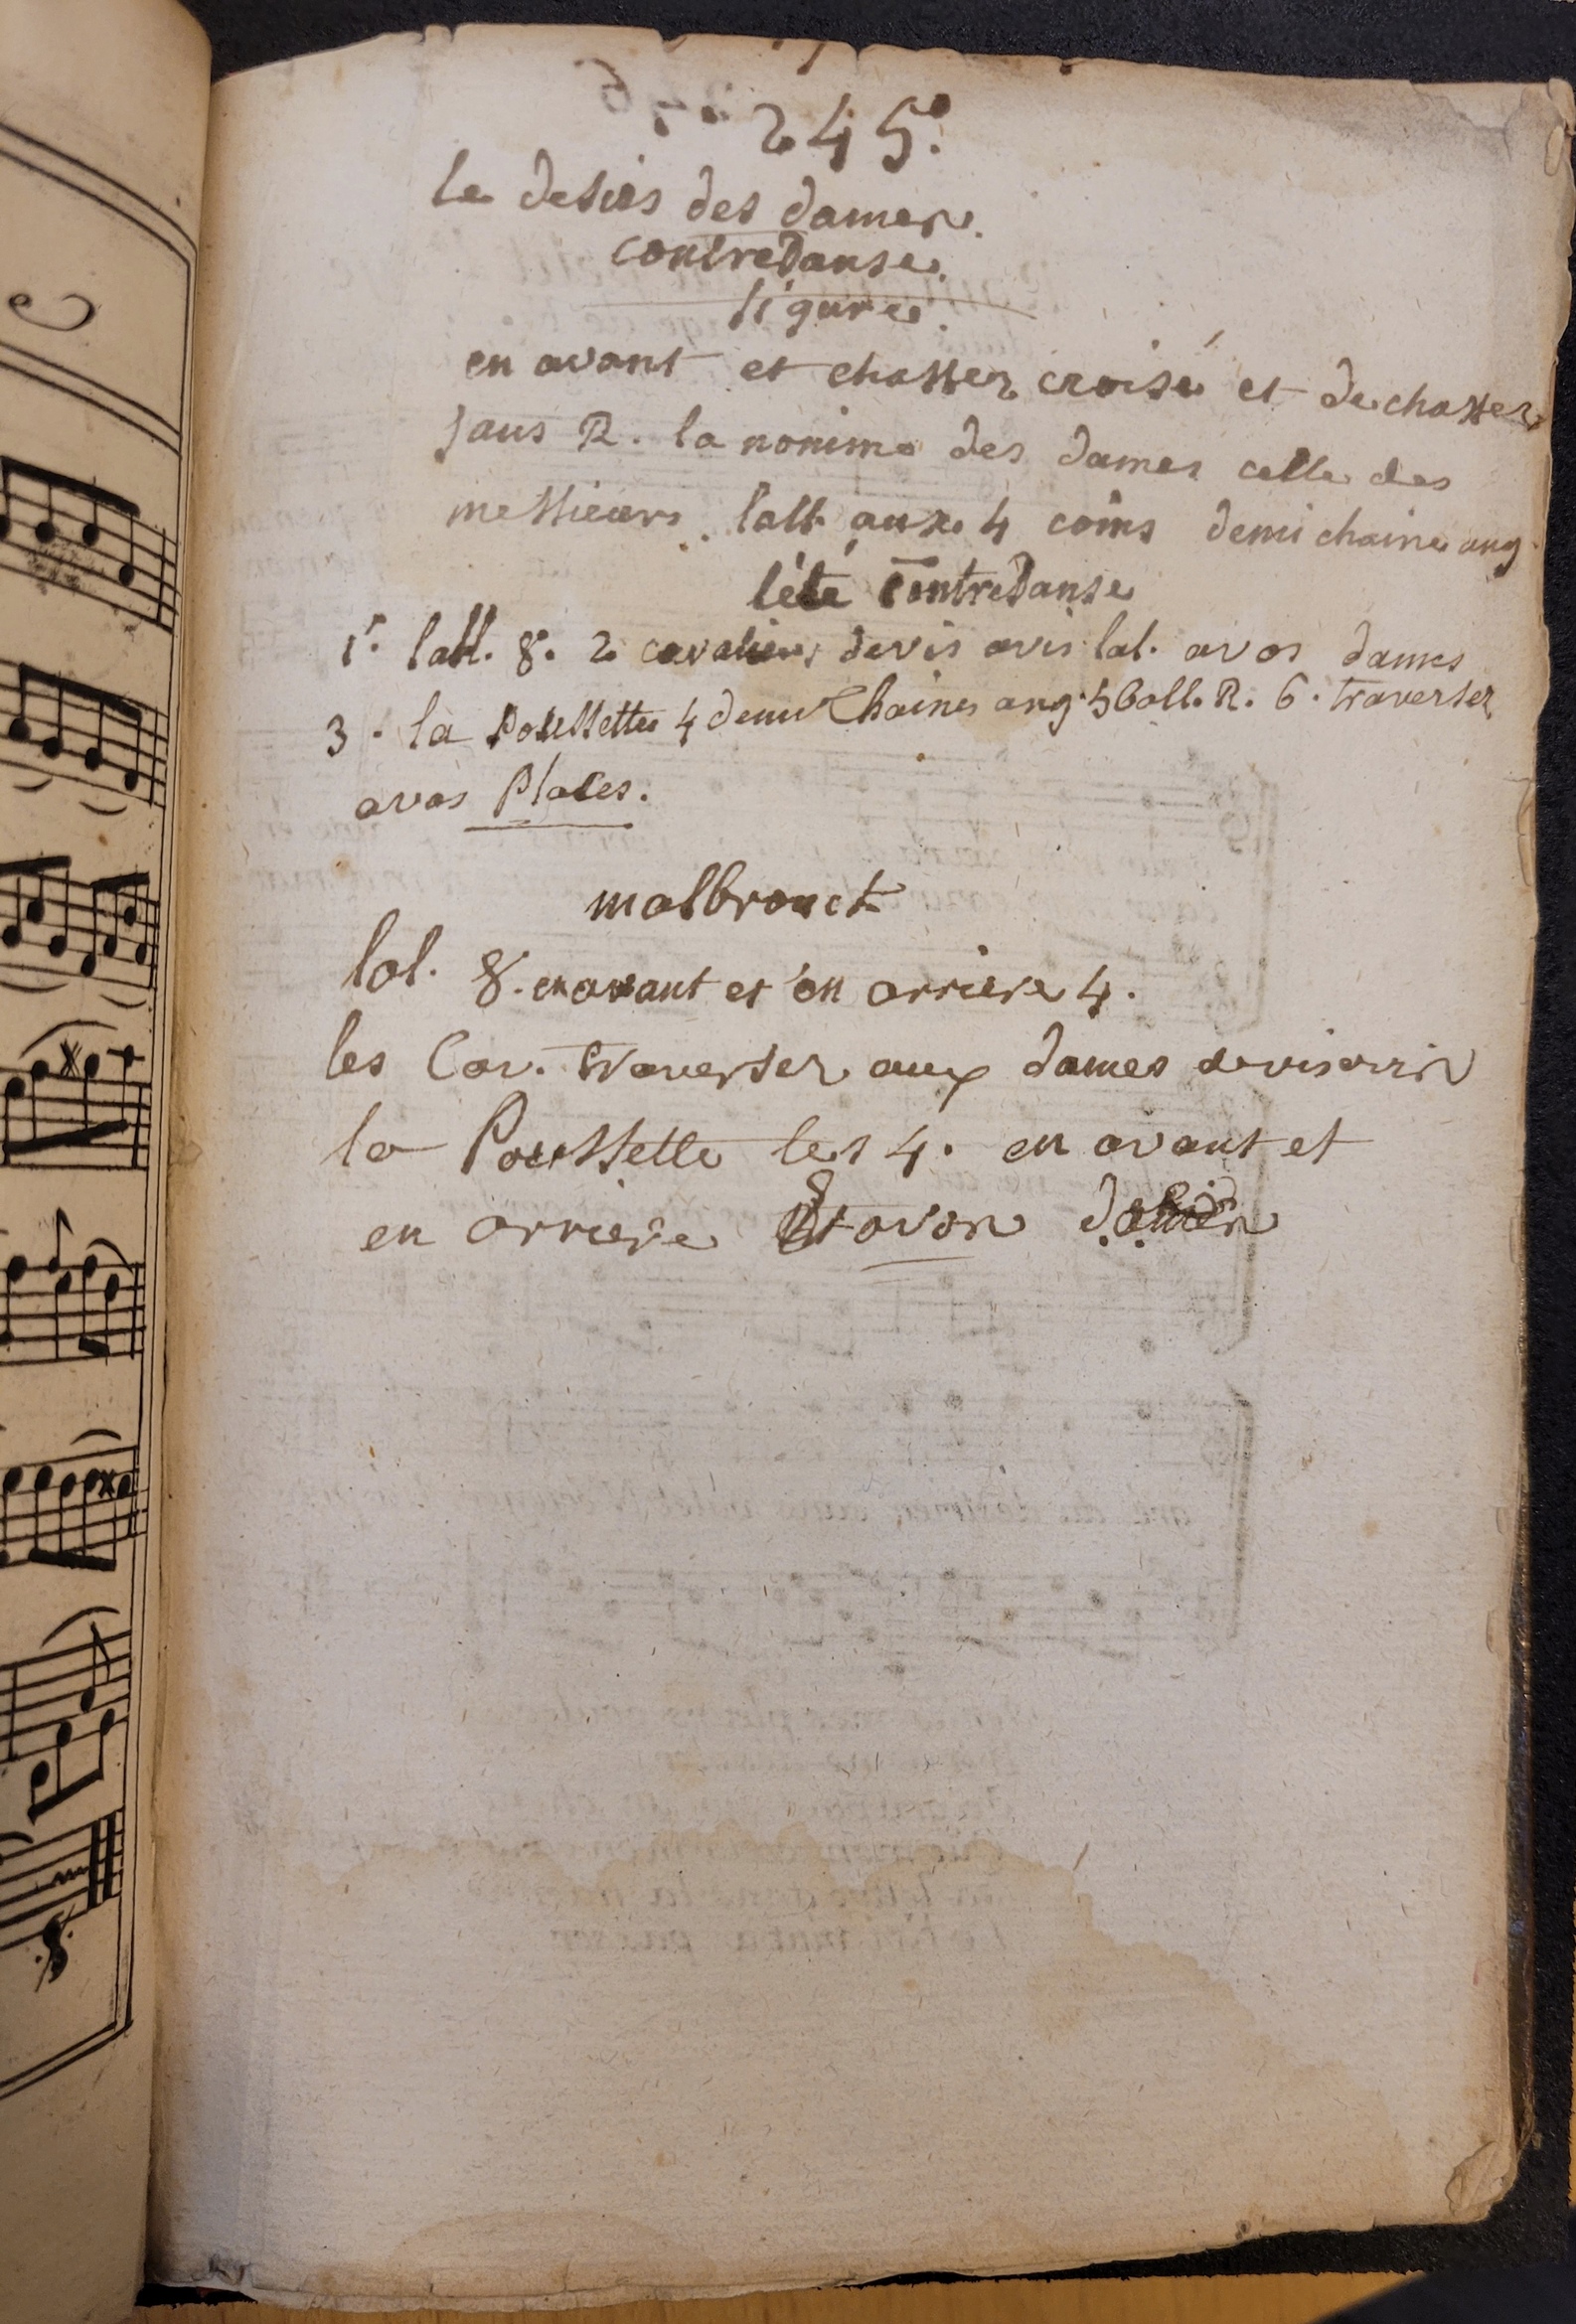 245.
le desirs des dames.
contredanse.
figure.
en avant et chasser croisé et dechasser
sans R. la nonime des dames celle des
messieurs. lall. aux 4 coins demi chaine ang.
lété Contredanse
1º. lall. 8. 2 cavaliers devis avis lal. avos dames
3. la Poussette 4 demi Chaines ang. 5 Ball. R. 6. traverser
avos Places.
malbrouct
lal. 8. en avant et en arriere 4.
les Cav. traverser aux dames devisavis
la Poussette les 4. en avant et
en arriere avon